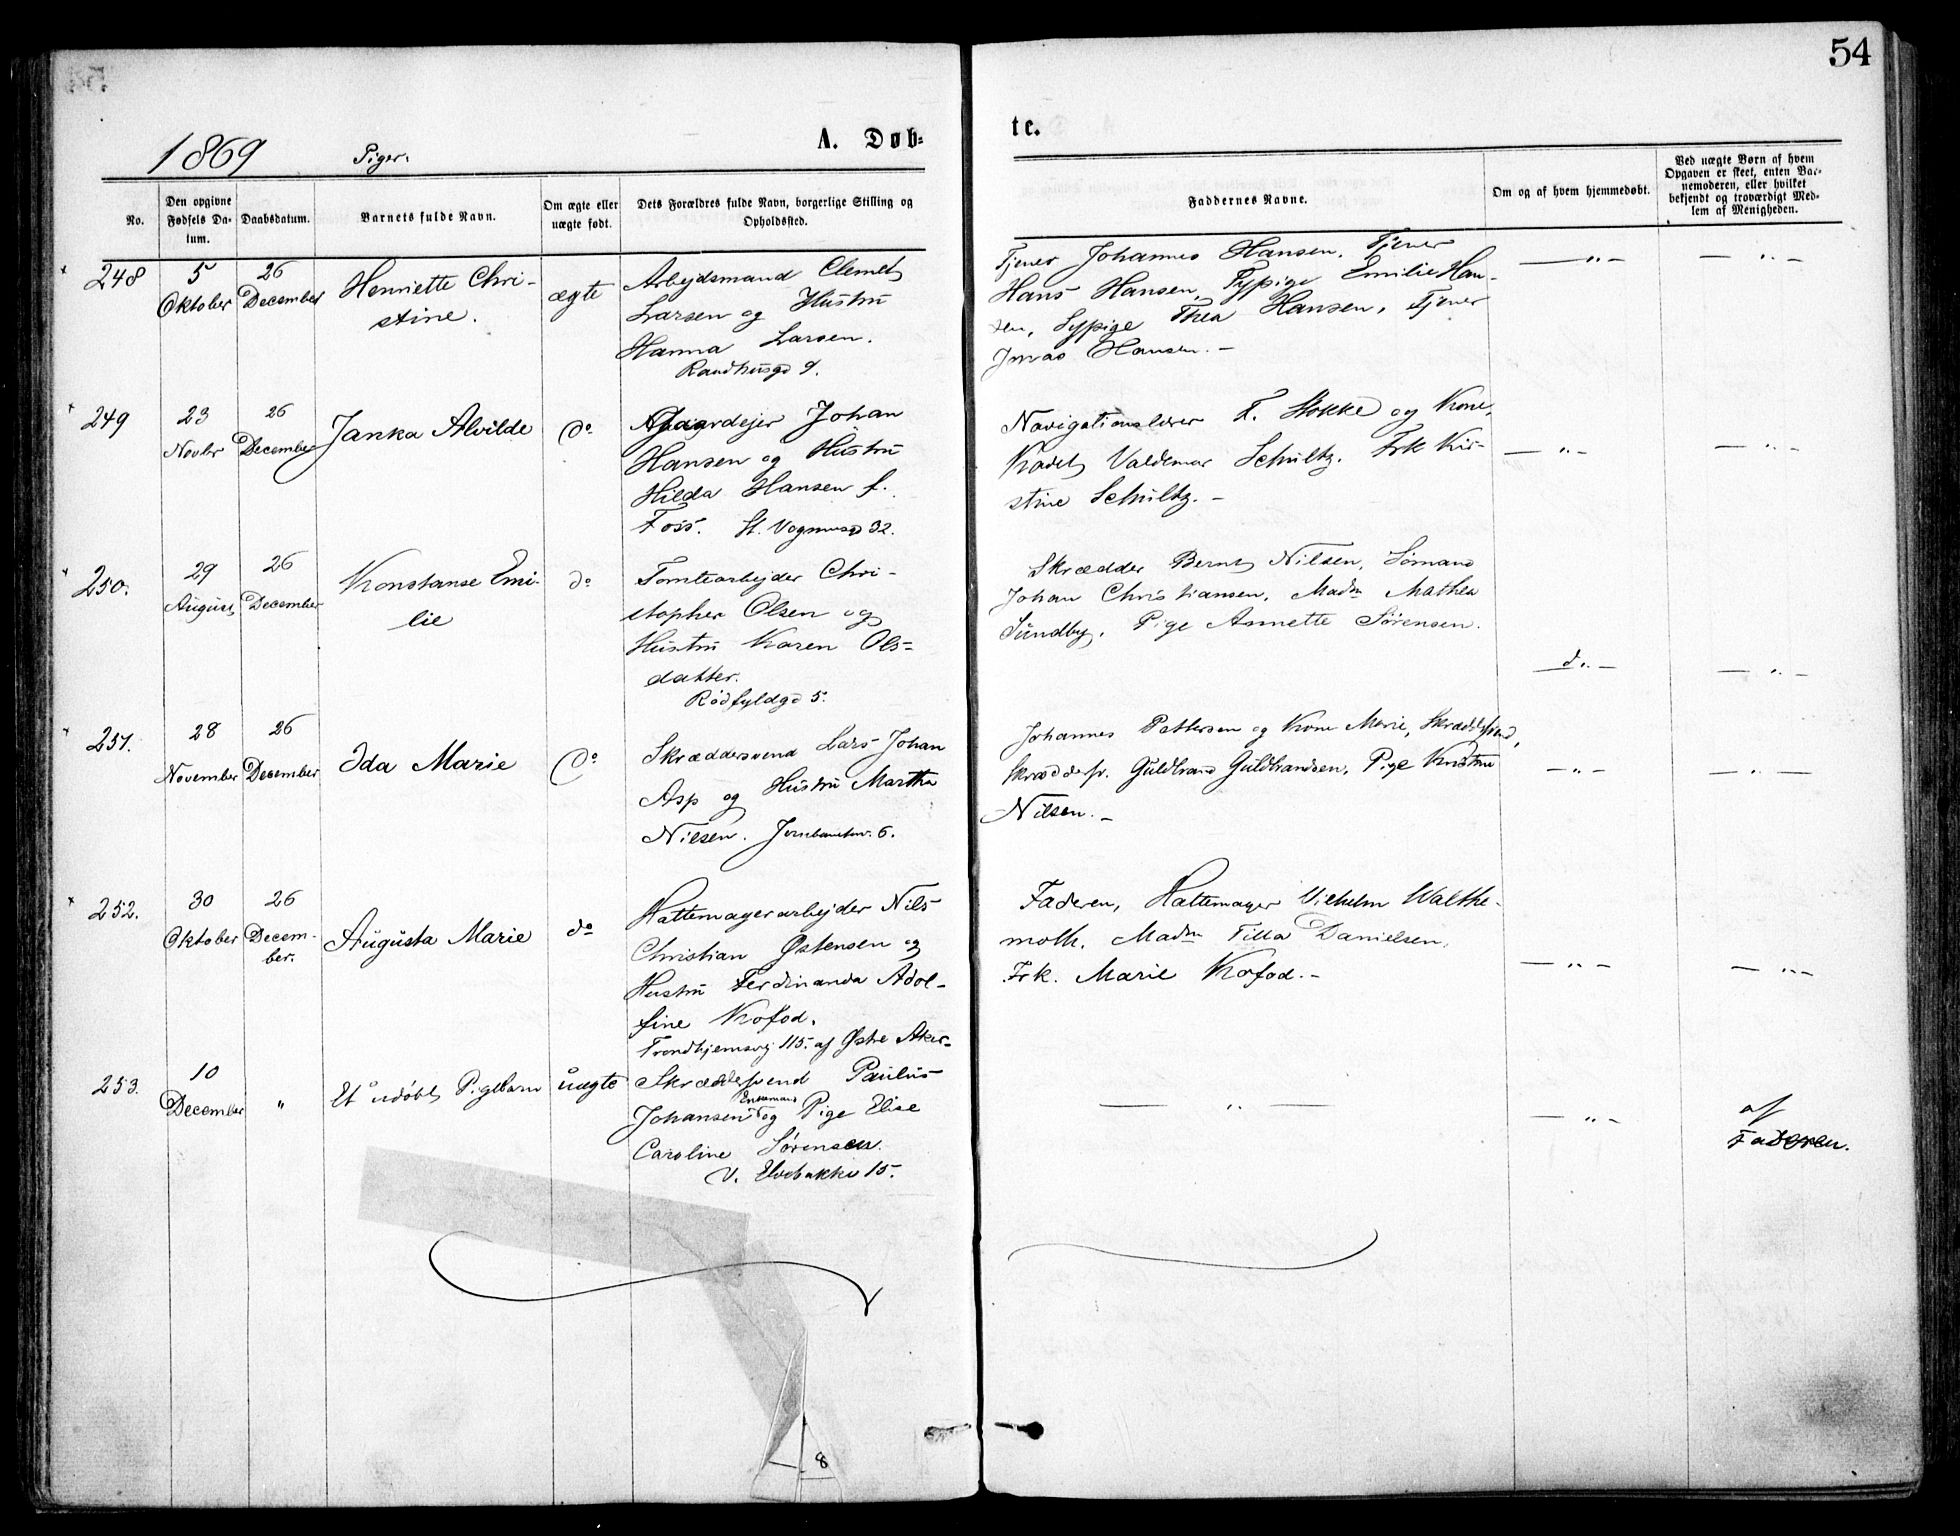 54
1869
Piger.
A. Døb-
te.
No.
Den opgivne Fødsels Da-
tum.
Daabsdatum.
Barnets fulde Navn.
Om ægte eller
uægte født.
Dets Forældres fulde Navn, borgerlige Stilling og
Opholdssted.
Faddernes Navne.
Om og af hvem hjemmedøbt.
Ved uægte Børn af hvem
Opgaven er skeet, enten Bar-
nemoderen, eller hvilket
bekjendt og troværdigt Med-
lem af Menigheden.
248
5
Oktober
26
December
Henriette Chri-
stine.
ægte
Arbejdsmand Clemet
Larsen og Hustru
Hanna Larsen.
9.
Tjener Johannes Hansen. Tjener
Hans Hansen, Sypige Emilie Han-
sen, Sypige Thea Hansen, Tjener
Hansen. -
— " —
— " —
249
23
Novbr
26
December
Janka Alvilde
do
Gaardejer Johan
Hansen og Hustru
Hilda Hansen f.
Foss. St. 32.
Navigationslærer F. Stokke og Kone,
Kadet Valdemar Schultz. Frk Kir-
stine Schultz. -
— " —
— " —
250.
29
August
26
December
Konstanse Emi-
lie
do
Tomtearbejder Chri-
stopher Olsen og
Hustru Karen Ols-
datter.
Rødfyldgd 5.
Skrædder Bernt Nilsen, Sømand
Johan Christiansen, Madm Mathea
Sundby. Pige Annette Sørensen.
— " —
251.
28
November
26
December
Ida Marie
do
Skræddersvend Lars Johan
Asp og Hustru Martha
Nilsen. 6.
Johannes Pettersen og Kone Marie, Skræddersvend,
Guldbrand Guldbrandsen, Pige
Nilsen. -
— " —
— " —
252.
30
Oktober
26
Decem-
ber.
Augusta Marie
do
Hattemagerarbejder Nils
Christian Østensen og
Hustru Ferdinanda Adol-
fine Kofod.
Trondhjemsvej 115. af Østre Aker-
Faderen, Hattemager Vilhelm Walthe-
moth. Madm Tilla Danielsen,
Frk. Marie Kofod. -
— " —
— " —
253.
10
December
"
Et udøbt Pigebarn
uægte
Skræddersvend Paulus
Johansen Enkemand og Pige Elise
Caroline Sørensen.
V. Elvebakke 15.
— " —
— " —
af
Faderen.
8